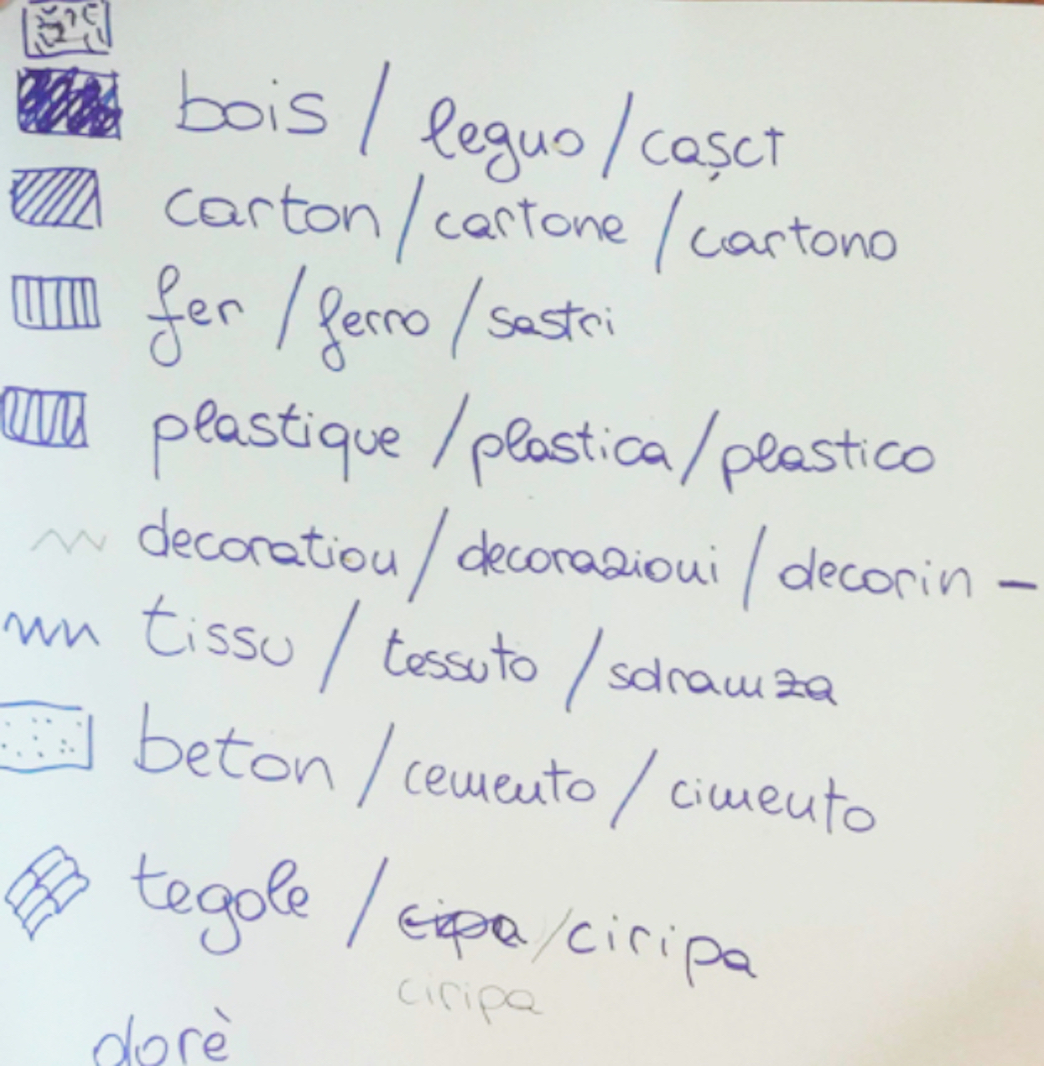 bois / legno / caşct
carton / cartone / cartono
fer / ferro / sastri
plastique / plastica / plastico
decoration / decorazioni / decorin -
tissu / tessuto / sdramza
beton / cemento / cimento
tegole / cipa / ciripa
ciripa
dorè